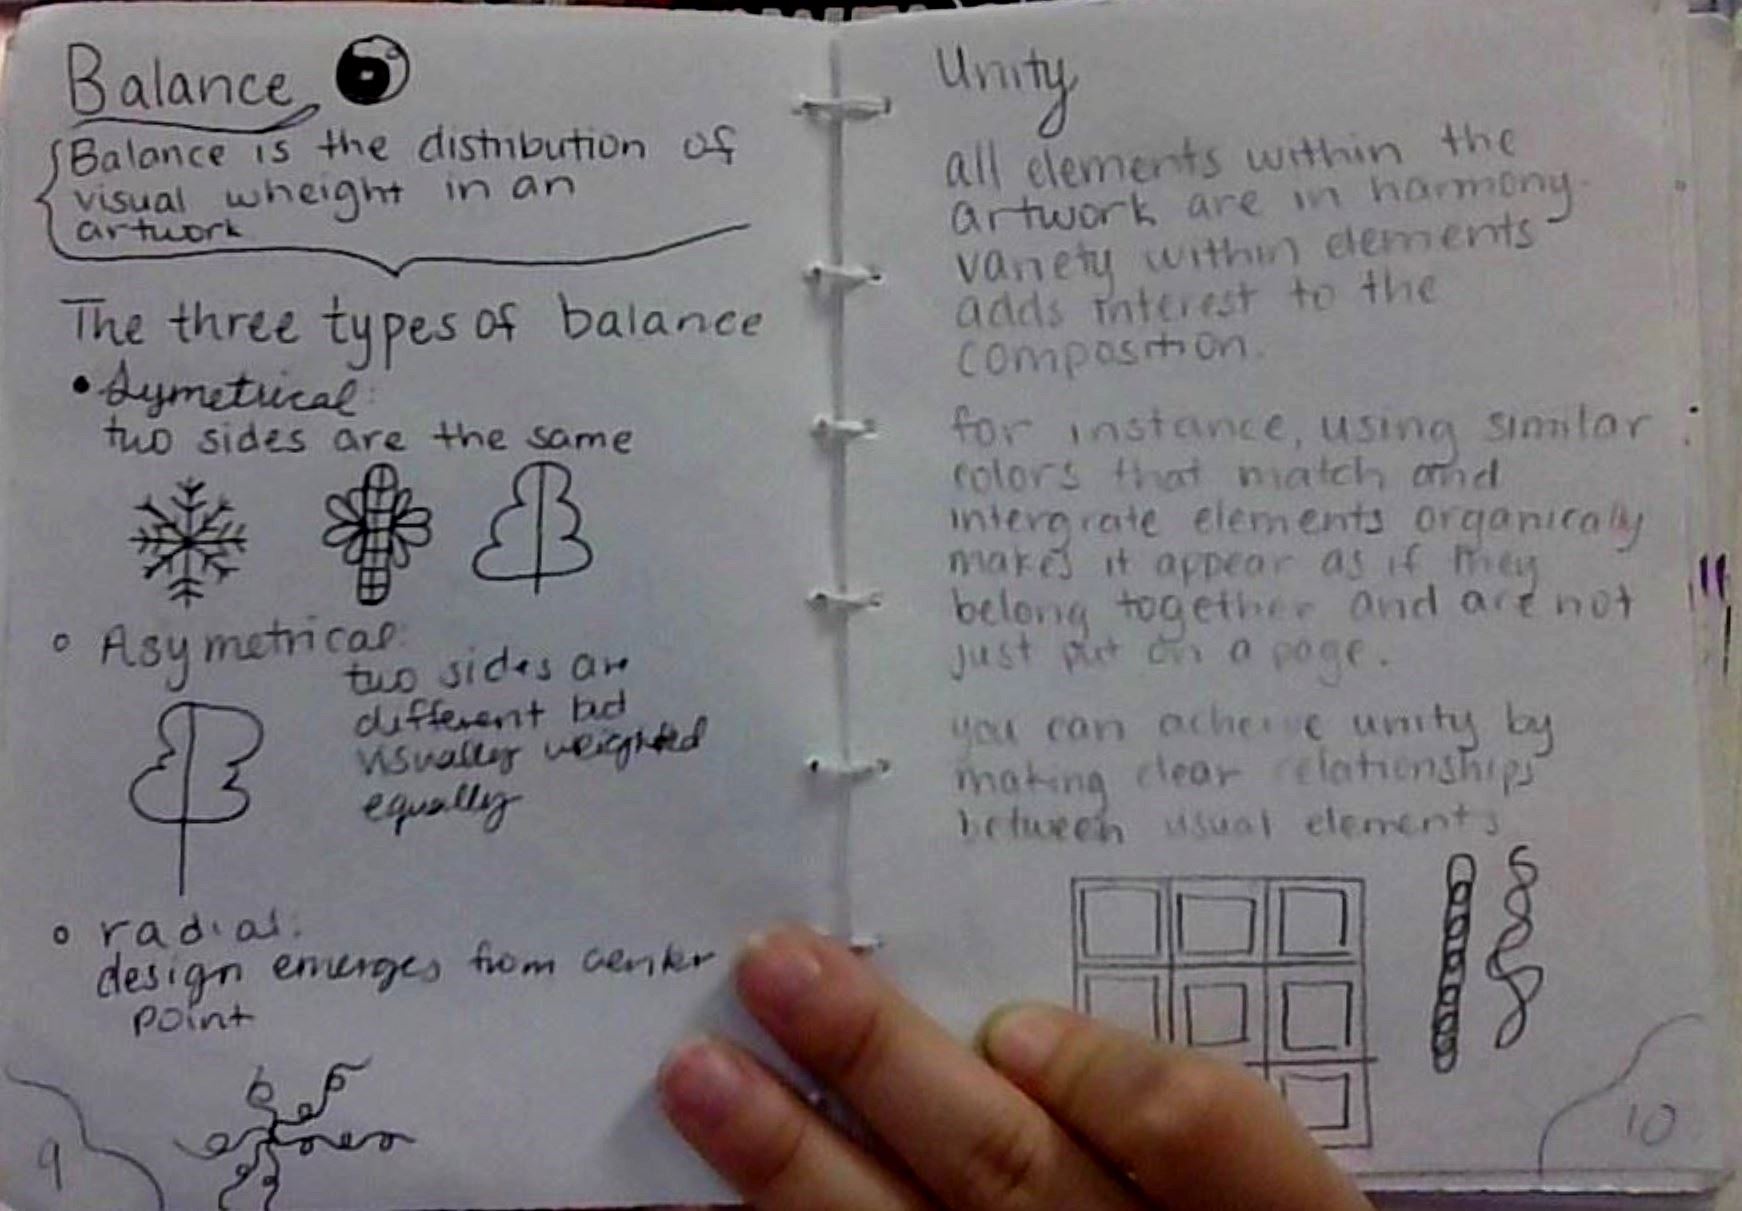 Balance
Balance is the distribution of
visual wheight in an
artwork
The three types of balance
• Symetrical:
two sides are the same
Asymetrical:
two sides are
different but
visually weighted
equally
radial:
design emerges from center
point
9
Unity
all elements within the
artwork are in harmony.
variety within elements
adds interest to the
composition.
for instance, using similar
colors that match and
intergrate elements organically
makes it appear as if they
belong together and are not
just put on a page.
you can acheive unity by
making clear relationships
between visual elements
10